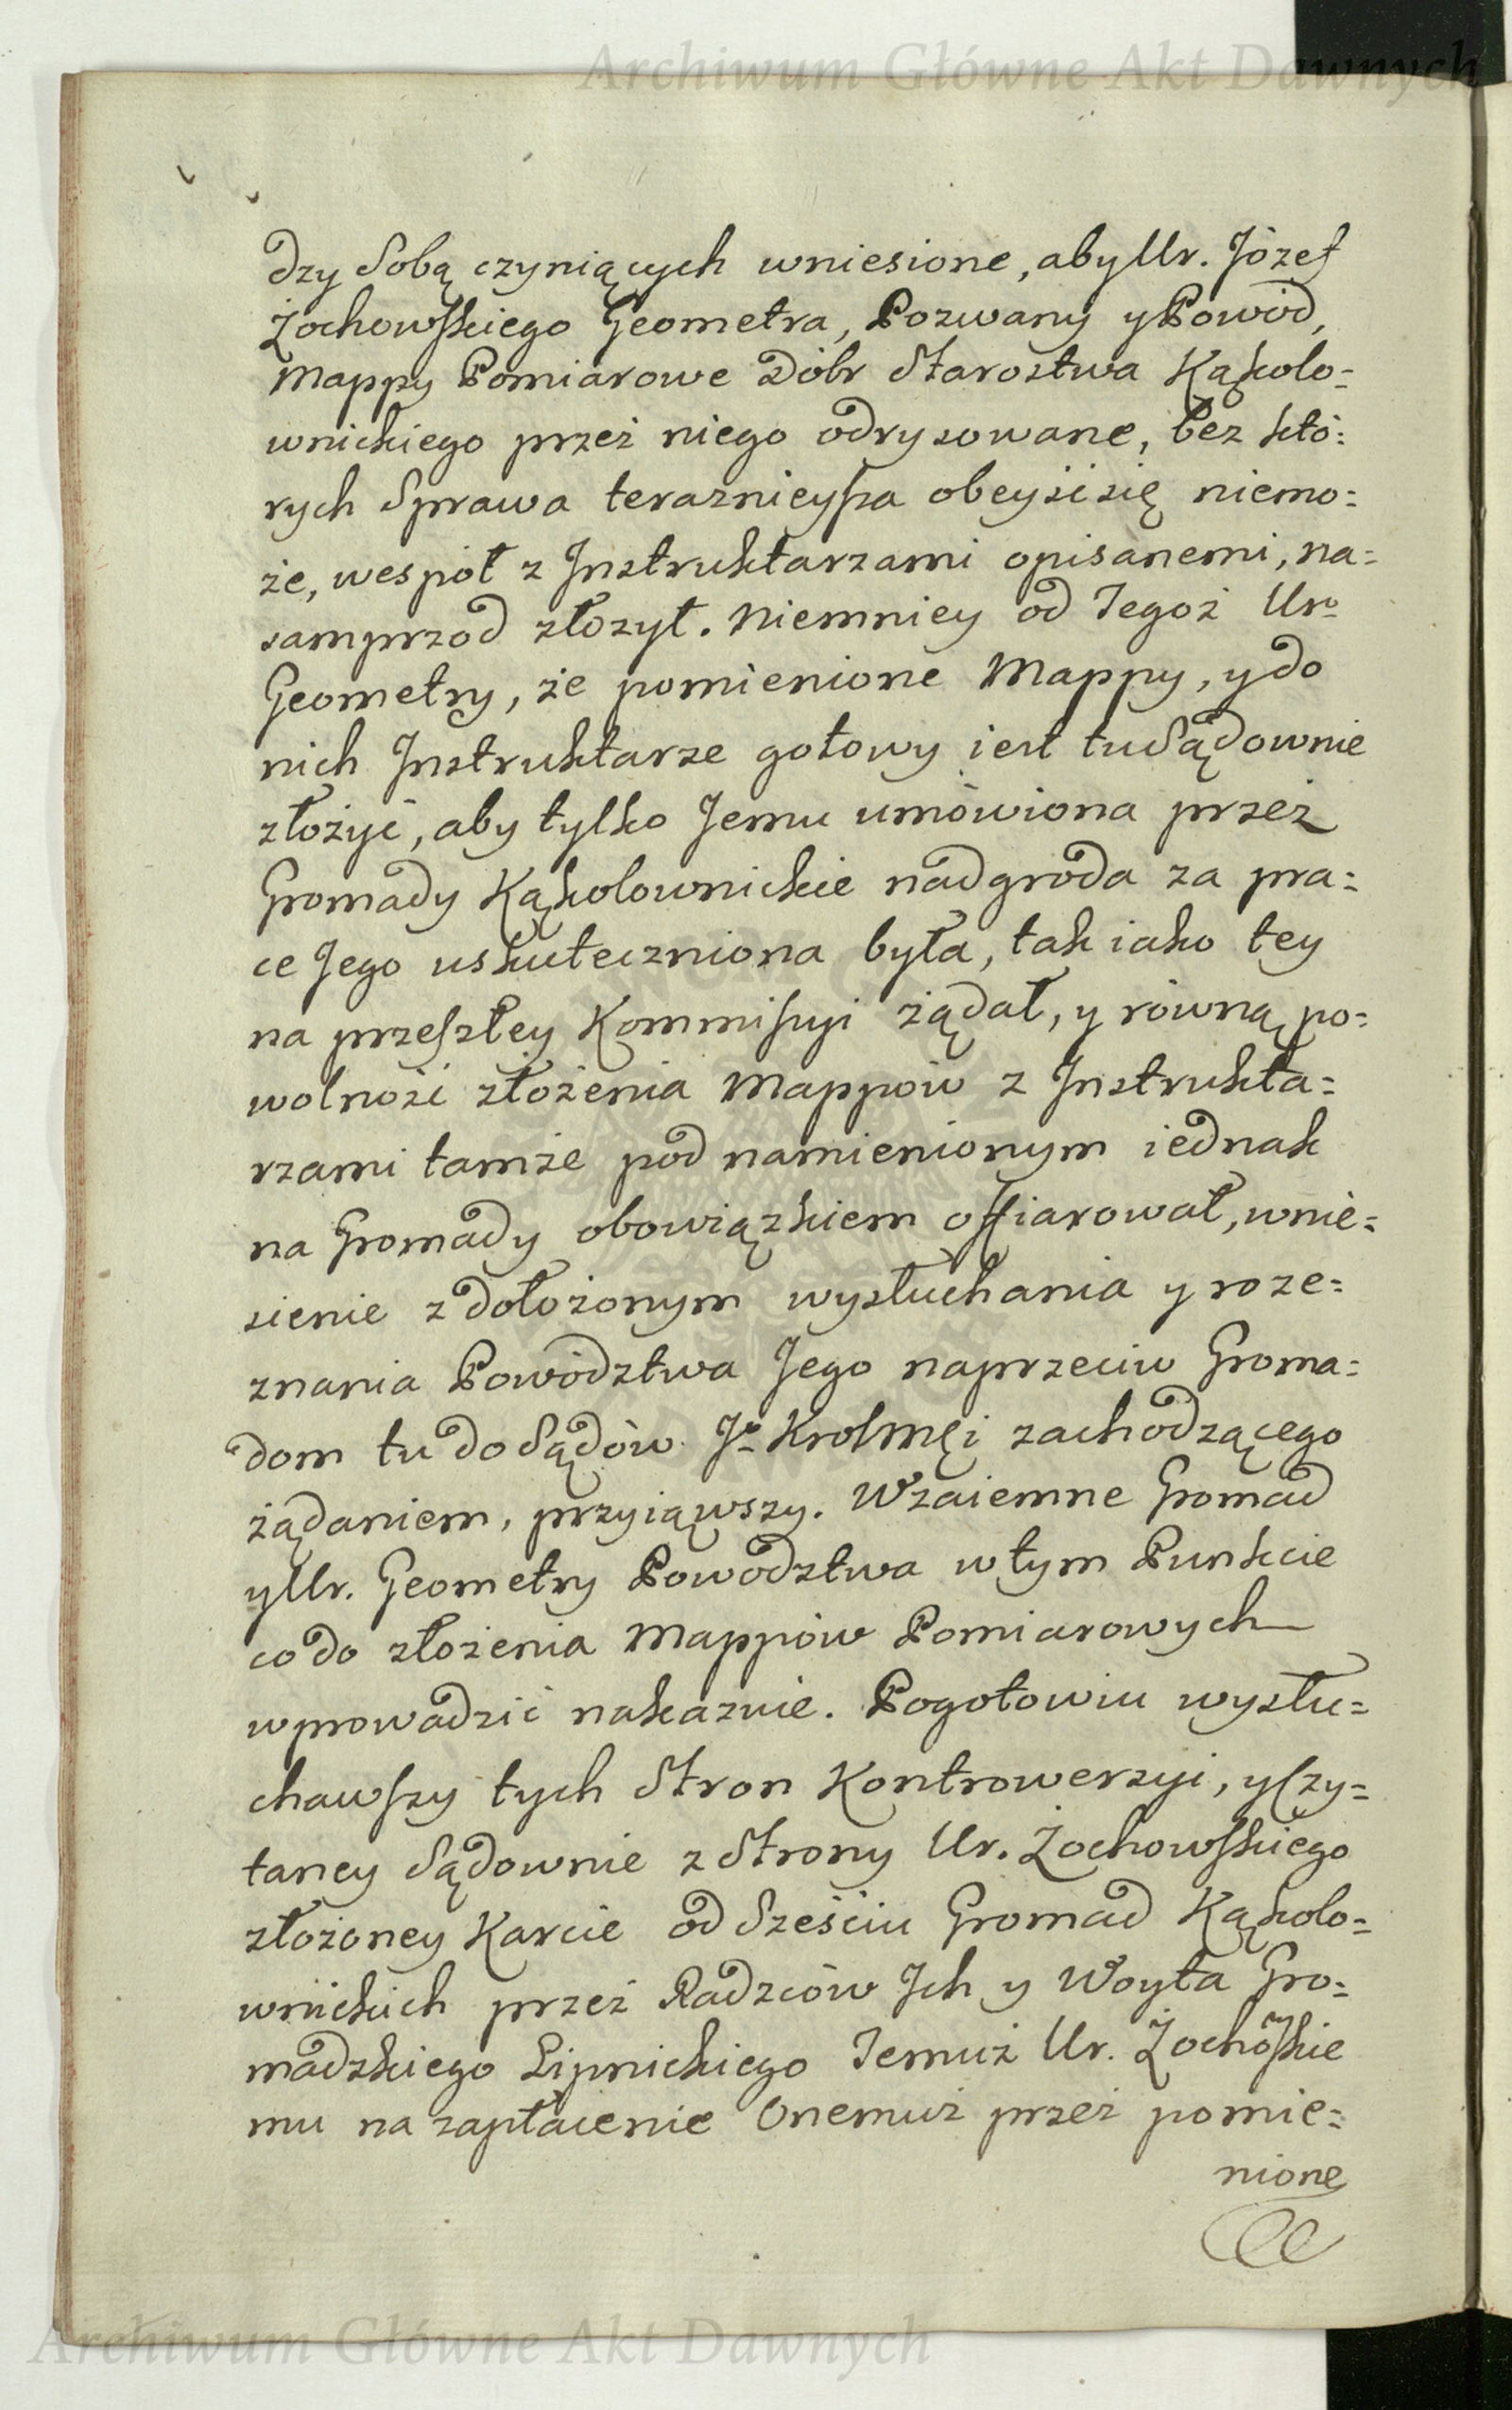 Archiwum Główne Akt Dawnych
dzy Sobą czyniących wniesione, aby Ur. Józef
Żochowskiego Geometra, Pozwany y Powód,
Mappy Pomiarowe Dóbr Starostwa Kąkolo=
wnickiego przez niego odrysowane, bez któ=
rych Sprawa teraznieysza obeyśi się niemo=
że, wespół z Instruktarzami opisanemi, na=
samprzod złozył. Niemniey od Tegoż Uro
Geometry, że pomienione Mappy, y do
nich Instruktarze gotowy iest tu Sądownie
złożyć, aby tylko Jemu umówiona przez
Gromady Kąkolownickie nadgroda za pra=
ce Jego uskuteczniona była, tak iako tey
na przeszłey Kommissyi żądał, y równą po=
wolność złożenia Mappów z Instrukta=
rzami tamże pod namienionym iednak
na Gromady obowiązkiem offiarował, wnie=
sienie z dołożonym wysłuchania y roze=
znania Powództwa Jego naprzeciw Groma=
dom tu do Sądów Jo KrolMęi zachodzącego
żądaniem, przyiąwszy. Wzaiemne Gromad
y Ur. Geometry Powodztwa w tym Punkcie
co do złożenia Mappów Pomiarowych
wprowadzić nakazuie. Pogotowiu wysłu=
chawszy tych Stron Kontrowersyi, y czy=
taney Sądownie z Strony Ur. Żochowskiego
złożoney Karcie od Sześciu Gromad Kąkolo=
wnickich przez Radzców Ich y Woyta Gro=
madzkiego Lipnickiego Temuż Ur. Żochoskie
mu na zapłacenie Onemuż przez pomie=
nione
Archiwum Główne Akt Dawnych